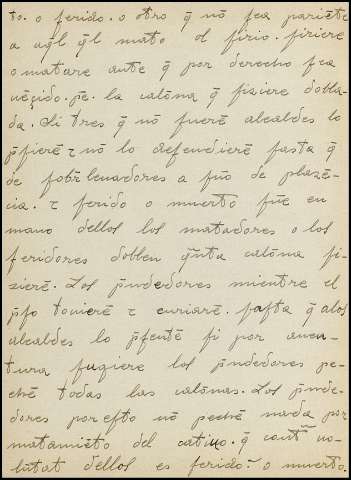 to. o ferido. o otro q̄ nō sea pariēte
a aq̄l q̄l mato ol firio. firiere
o matare ante q̄ por derecho sea
uēçido. pe. la calōna q̄ fiziere dobla-
da. Si tres q̄ nō fuerē alcaldes lo
p̄fierē τ nō lo defendierē fasta q̄
de sobrleuadores a fuo de plazē-
cia. τ ferido o muerto fue en
mano dellos los matadores o los
feridores doblen q̄nta calōna fi-
zierē. Los p̄ndedores mientre el
p̄so touierē τ curiarē. fasta q̄ alos
alcaldes lo p̄sentē si por auen-
tura fugiere los p̄ndedores pe-
chē todas las calōnas. Los p̄nde-
dores por esto nō pechē nada por
matamiēto del catiuo. q̄ contra uo-
lūtat dellos es ferido o muerto.